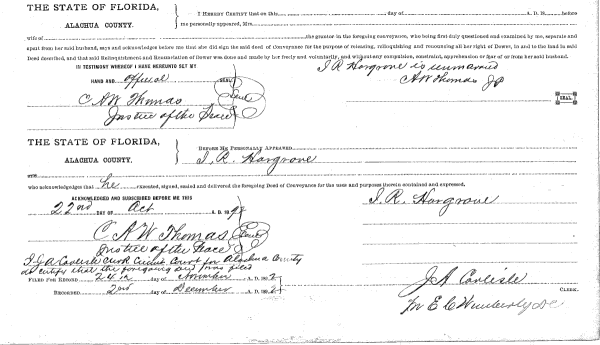 THE STATE OF FLORIDA,
ALACHUA COUNTY.
I HEREBY CERTIFY that on this day of A. D. 18 before
me personally appeared, Mrs.
wife of the grantor in the foregoing conveyance, who being first duly questioned and examined by me, separate and
apart from her said husband, says and acknowledges before me that she did sign the said deed of Conveyance for the purpose of releasing, relinquishing and renouncing all her right of Dower, in and to the land in said
Deed described, and that said Relinquishment and Renunciation of Dower was done and made by her freely and voluntarily, and without any compulsion, constraint, apprehension or fear of or from her said husband.
IN TESTIMONY WHEREOF I HAVE HEREUNTO SET MY
HAND AND official SEAL
I. R. Hargrove is unmarried
C A W Thomas JP
C A W Thomas Seal
SEAL
Justice of the Peace
THE STATE OF FLORIDA,
ALACHUA COUNTY.
BEFORE ME PERSONALLY APPEARED
I. R. Hargrove
who acknowledges that he executed, signed, sealed and delivered the foregoing Deed of Conveyance for the uses and purposes therein contained and expressed.
ACKNOWLEDGED AND SUBSCRIBED BEFORE ME THIS
22nd DAY OF Oct A. D. 1892
I. R. Hargrove
C A W Thomas Seal
Justice of the Peace
I J A Carlisle Clerk Circuit Court for Alachua County
do certify that the foregoing deed was filed
FILED FOR RECORD 24th day of November A. D. 1892
RECORDED 2nd day of December A. D. 1892
J A Carlisle
CLERK.
Per E. C. Wimberly DC